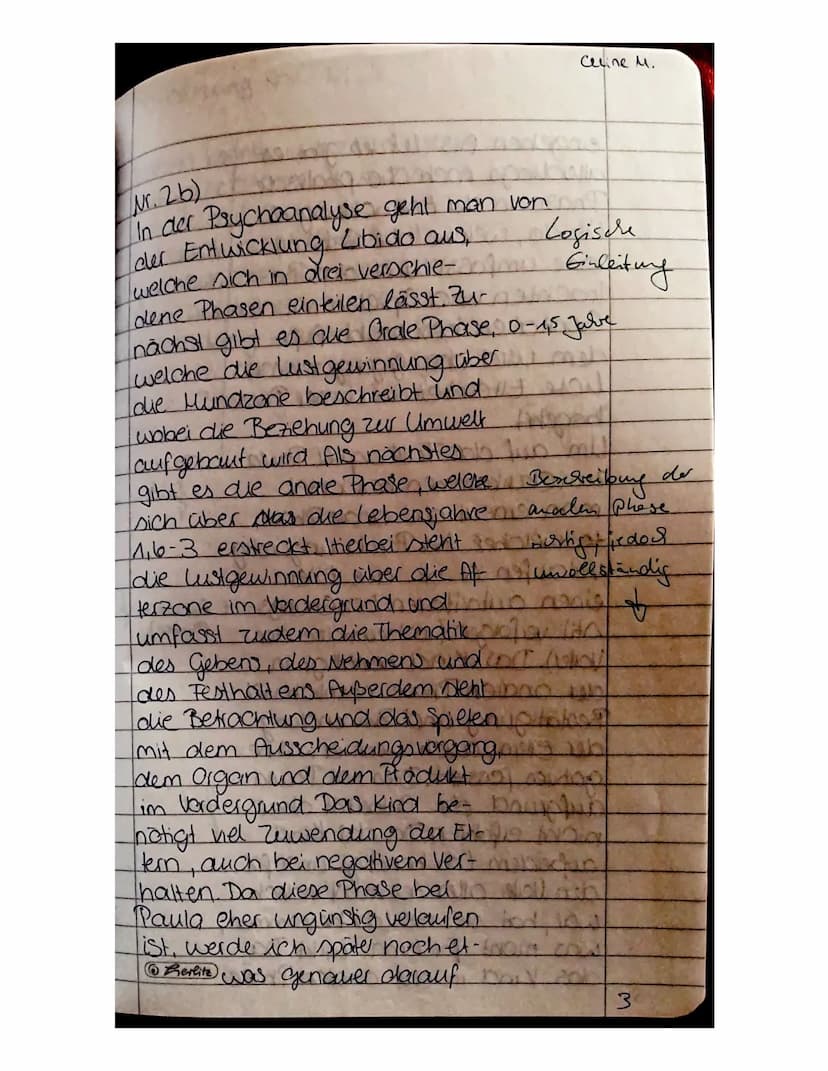 Celine M.
Nr. 2b)
In der Psychoanalyse geht man von
der Entwicklung Libido aus,
Logische
welche sich in drei verschie-
Einleitung
dene Phasen einteilen lässt. Zu-
nächst gibt es die Orale Phase, 0-1,5 Jahre
welche die Lustgewinnung über
die Mundzone beschreibt und
wobei die Beziehung zur Umwelt
aufgebaut wird. Als nächstes
gibt es die anale Phase, welche
Beschreibung der
sich über die Lebensjahre
analen Phase
1,6-3 erstreckt. Hierbei steht
jedoch
die Lustgewinnung über die Af-
unvollständig
terzone im Vordergrund und
umfasst zudem die Thematik
des Gebens, des Nehmens und
des Festhaltens. Außerdem steht
die Betrachtung und das Spielen
mit dem Ausscheidungsvorgang,
dem Organ und dem Produkt
im Vordergrund. Das Kind be-
nötigt viel Zuwendung der El-
tern, auch bei negativem Ver-
halten. Da diese Phase bei
Paula eher ungünstig verlaufen
ist, werde ich später noch et-
was genauer darauf
3